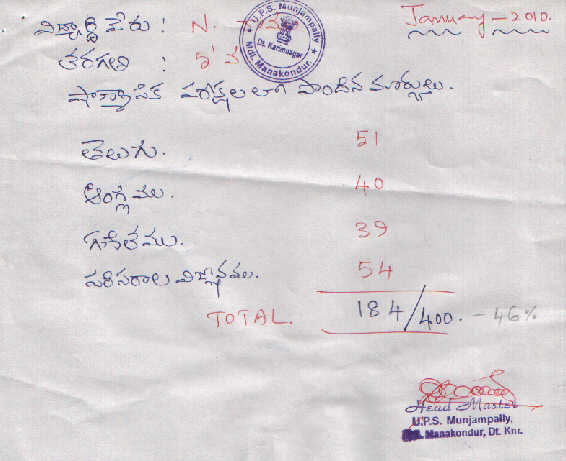 విద్యార్థి పేరు : N. January - 2010.
U.P.S. Munjampally
Dt. Karimnagar
Mdl. Manakondur.
తరగతి : 5వ
షాణ్మాసిక పరీక్షలలో పొందిన మార్కులు.
తెలుగు. 51
ఆంగ్లము. 40
గణితము. 39
పరిసరాల విజ్ఞానము. 54
TOTAL. 184/400. - 46%
Head Master
U.P.S. Munjampally,
Manakondur, Dt. Knr.